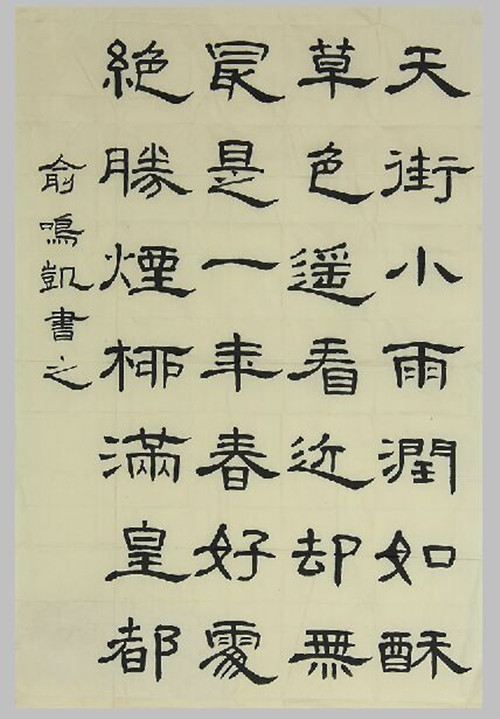 天街小雨潤如酥
草色遥看近却無
最是一年春好處
絕勝煙柳滿皇都
俞鳴凱書之